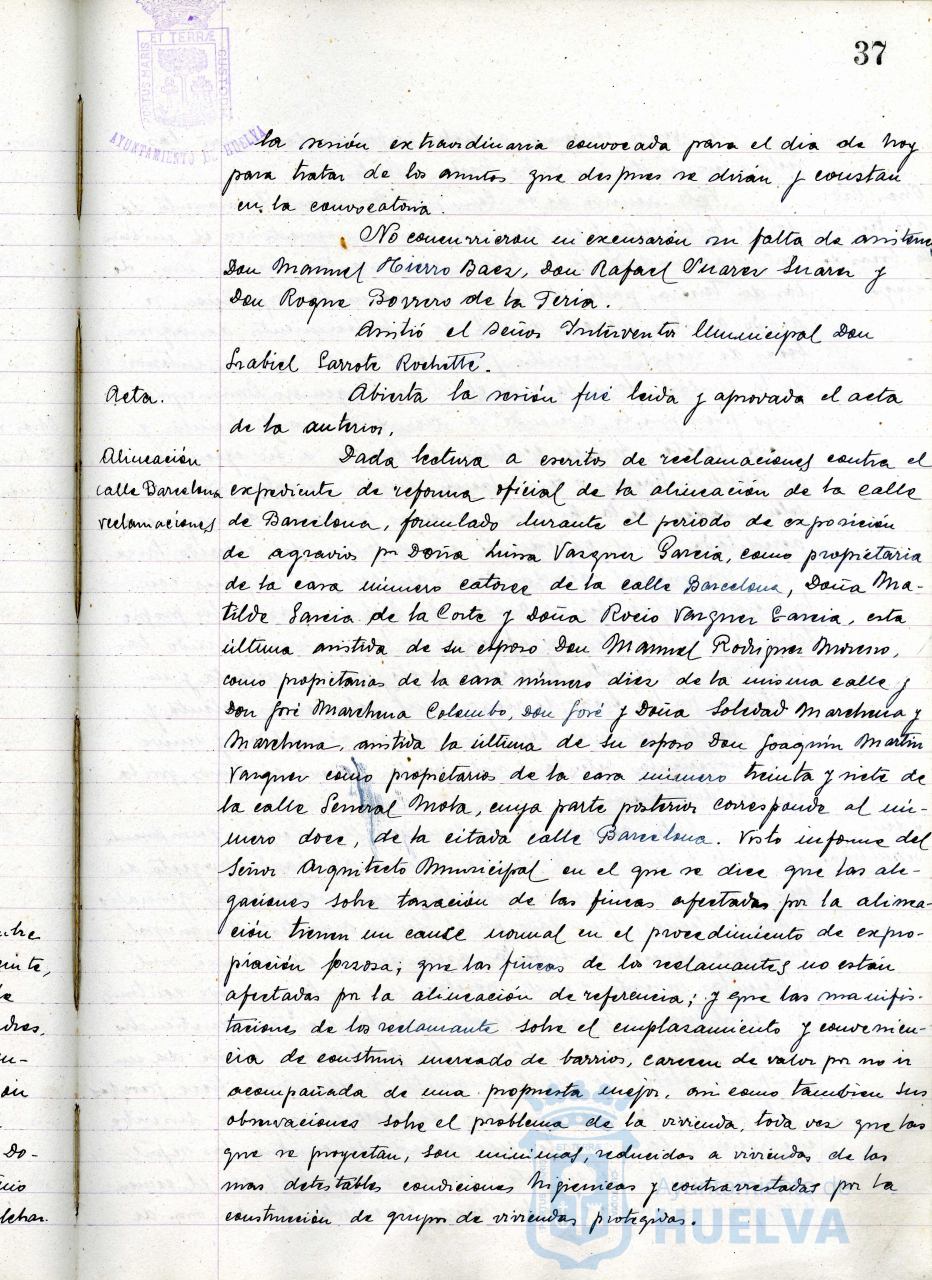 37
PORTUS MARIS ET TERRÆ CUSTODIA
AYUNTAMIENTO DE HUELVA
la sesión extraordinaria convocada para el dia de hoy
para tratar de los asuntos que despues se dirán y constan
en la convocatoria.
No concurrieron ni excusarón su falta de asistenc
Don Manuel Hierro Baez, Don Rafael Suarez Suarez y
Don Roque Borrero de la Feria.
Asistió el Señor Interventor Municipal Don
Isabiel Garrote Rochette.
Acta.
Abierta la sesión fué leida y aprovada el acta
de la anterior.
Alineación
calle Barcelona
reclamaciones
Dada lectura a escritos de reclamaciones contra el
expediente de reforma oficial de la alineación de la calle
de Barcelona, formulado durante el periodo de exposición
de agravios por Doña Luisa Vazquez Garcia, como propietaria
de la casa número catorce de la calle Barcelona, Doña Ma-
tilde Garcia de la Corte y Doña Rocio Vazquez Garcia, esta
última asistida de su esposo Don Manuel Rodriguez Moreno,
como propietarias de la casa número diez de la misma calle y
Don José Marchena Colombo, Don José y Doña Soledad Marchena y
Marchena, asistida la última de su esposo Don Joaquín Martin
Vazquez como propietarios de la casa número treinta y siete de
la calle General Mola, cuya parte posterior corresponde al nú-
mero doce, de la citada calle Barcelona. Visto informe del
Señor Arquitecto Municipal en el que se dice que las ale-
gaciones sobre tasación de las fincas afectadas por la alinea-
ción tienen un cauce normal en el procedimiento de expro-
piación forzosa; que las fincas de los reclamantes no están
afectadas por la alineación de referencia; y que las manifes-
taciones de los reclamante sobre el emplazamiento y convenien-
cia de construir mercado de barrios, carecen de valor por no ir
acompañada de una propuesta mejor, asi como tambien sus
observaciones sobre el problema de la vivienda, toda vez que las
que se proyectan, son minimas, reducidas a viviendas de las
mas detestables condiciones higienicas y contrarrestadas por la
construcción de grupos de viviendas protegidas.
Ayuntamiento de
HUELVA